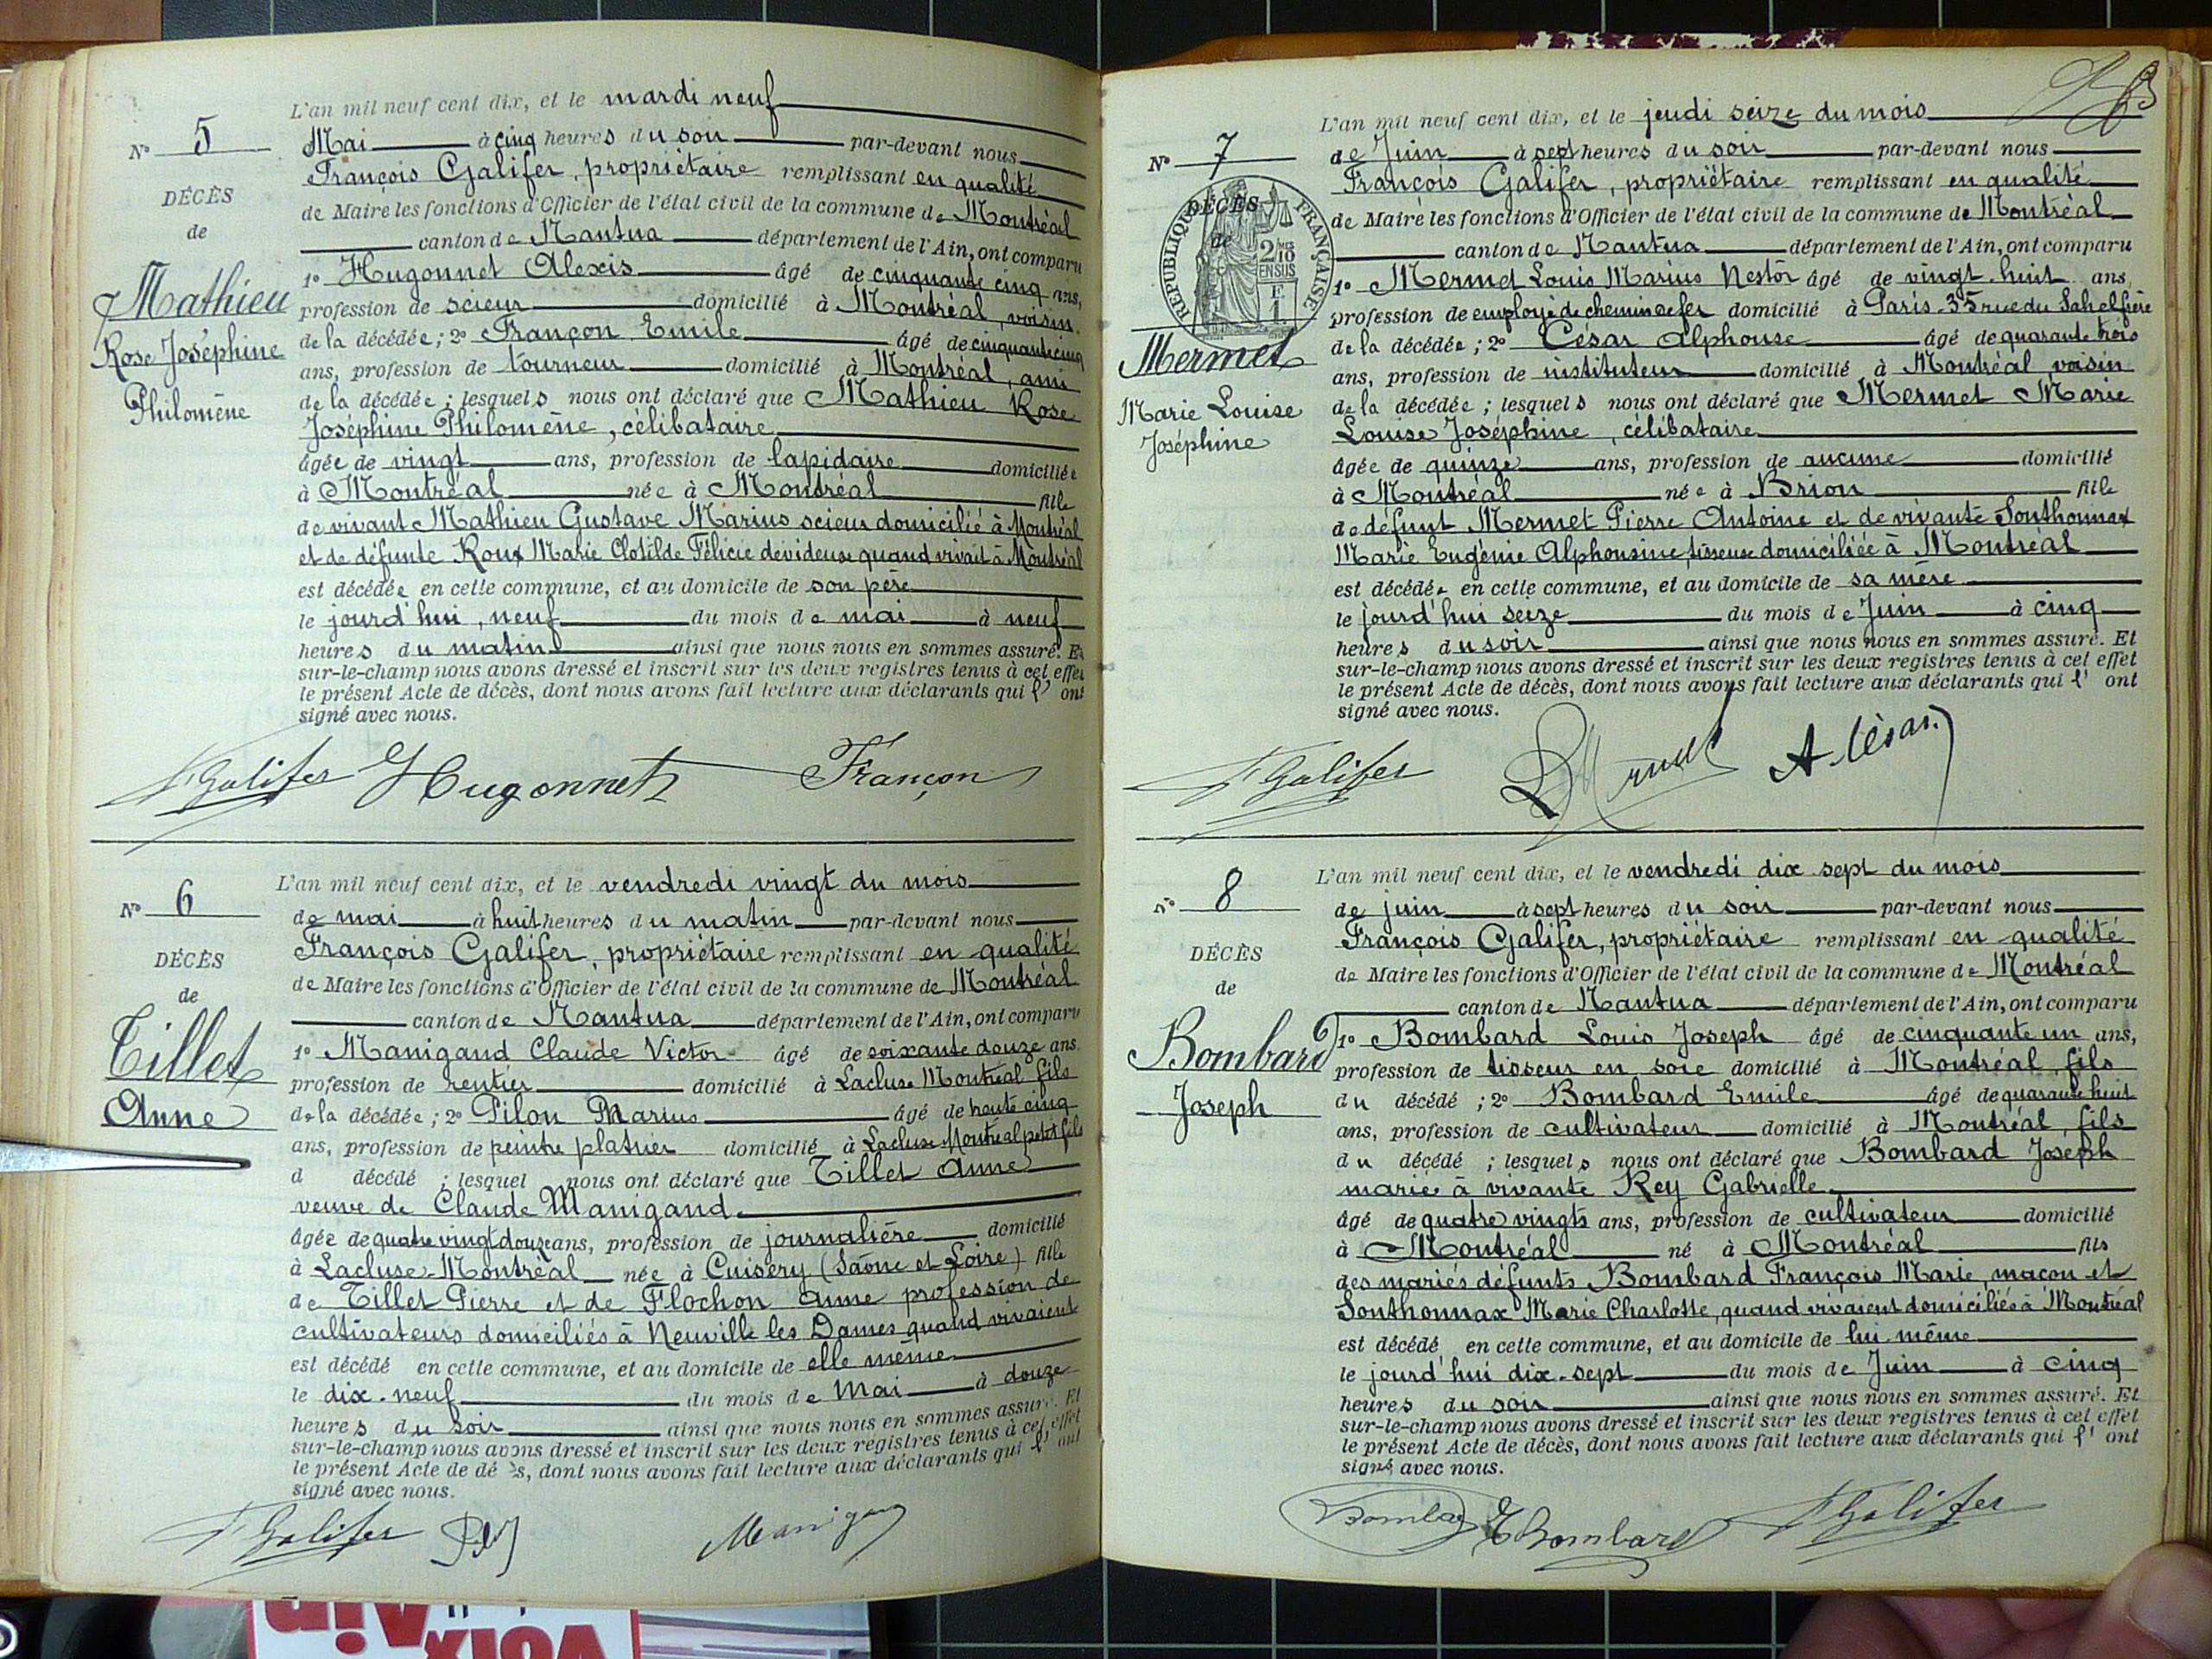 L'an mil neuf cent dix, et le mardi neuf
N° 5
Mai à cinq heures du soir par-devant nous
François Galifer, propriétaire remplissant en qualité
DÉCÈS
de Maire les fonctions d'Officier de l'état civil de la commune de Montréal
de
canton de Nantua département de l'Ain, ont comparu
1° Hugonnet Alexis âgé de cinquante cinq ans,
Mathieu
profession de scieur domicilié à Montréal, voisin
de la décédée ; 2° Françon Emile âgé de cinquante cinq
Rose Joséphine
ans, profession de tourneur domicilié à Montréal, ami
Philomène
de la décédée ; lesquels nous ont déclaré que Mathieu Rose
Joséphine Philomène, célibataire
âgée de vingt ans, profession de lapidaire domiciliée
à Montréal née à Montréal fille
de vivant Mathieu Gustave Marius scieur domicilié à Montréal
et de défunte Roux Marie Clotilde Félicie dévideuse quand vivait à Montréal
est décédée en cette commune, et au domicile de son père
le jourd'hui, neuf du mois de mai à neuf
heures du matin ainsi que nous nous en sommes assuré. Et
sur-le-champ nous avons dressé et inscrit sur les deux registres tenus à cet effet
le présent Acte de décès, dont nous avons fait lecture aux déclarants qui l' ont
signé avec nous.
F Galifer Hugonnet Françon
L'an mil neuf cent dix, et le vendredi vingt du mois
N° 6
de mai à huit heures du matin par-devant nous
François Galifer, propriétaire remplissant en qualité
DÉCÈS
de Maire les fonctions d'Officier de l'état civil de la commune de Montréal
de
canton de Nantua département de l'Ain, ont comparu
Tillet
1° Manigand Claude Victor âgé de soixante douze ans
profession de rentier domicilié à Lacluse Montréal fils
Anne
de la décédée ; 2° Pilon Marius âgé de trente cinq
ans, profession de peintre platrier domicilié à Lacluse Montréal petit fils
d décédé ; lesquel nous ont déclaré que Tillet Anne
veuve de Claude Manigand
âgée de quatre vingt douze ans, profession de journalière domicilié
à Lacluse-Montréal née à Cuisery (Saône et Loire) fille
de Tillet Pierre et de Flochon Anne profession de
cultivateurs domiciliés à Neuville les Dames quand vivaient
est décédé en cette commune, et au domicile de elle même
le dix-neuf du mois de Mai à douze
heures du soir ainsi que nous nous en sommes assuré. Et
sur-le-champ nous avons dressé et inscrit sur les deux registres tenus à cet effet
le présent Acte de dé ès, dont nous avons fait lecture aux déclarants qui l' ont
signé avec nous.
F Galifer Manigand
L'an mil neuf cent dix, et le jeudi seize du mois
N° 7
de Juin à sept heures du soir par-devant nous
François Galifer, propriétaire remplissant en qualité
DÉCÈS
de Maire les fonctions d'Officier de l'état civil de la commune de Montréal
de
RÉPUBLIQUE FRANÇAISE
2/10 EN SUS
E
1
canton de Nantua département de l'Ain, ont comparu
1° Mermet Louis Marius Nestor âgé de vingt-huit ans,
profession de employé de chemin de fer domicilié à Paris-35 rue du Sahel frère
Mermet
de la décédée ; 2° César Alphonse âgé de quarante trois
ans, profession de instituteur domicilié à Montréal voisin
Marie Louise
de la décédée ; lesquels nous ont déclaré que Mermet Marie
Joséphine
Louise Joséphine, célibataire
âgée de quinze ans, profession de aucune domicilié
à Montréal née à Brion fille
de défunt Mermet Pierre Antoine et de vivante Sonthonnax
Marie Eugénie Alphonsine, tisseuse domiciliée à Montréal
est décédée en cette commune, et au domicile de sa mère
le jourd'hui seize du mois de Juin à cinq
heures du soir ainsi que nous nous en sommes assuré. Et
sur-le-champ nous avons dressé et inscrit sur les deux registres tenus à cet effet
le présent Acte de décès, dont nous avons fait lecture aux déclarants qui l' ont
signé avec nous.
F Galifer A. César
L'an mil neuf cent dix, et le vendredi dix sept du mois
N° 8
de juin à sept heures du soir par-devant nous
François Galifer, propriétaire remplissant en qualité
DÉCÈS
de Maire les fonctions d'Officier de l'état civil de la commune de Montréal
de
canton de Nantua département de l'Ain, ont comparu
Bombard
1° Bombard Louis Joseph âgé de cinquante un ans,
profession de tisseur en soie domicilié à Montréal, fils
Joseph
du décédé ; 2° Bombard Emile âgé de quarante huit
ans, profession de cultivateur domicilié à Montréal, fils
du décédé ; lesquels nous ont déclaré que Bombard Joseph
marié à vivante Rey Gabrielle
âgé de quatre vingts ans, profession de cultivateur domicilié
à Montréal né à Montréal fils
des mariés défunts Bombard François Marie, maçon et
Sonthonnax Marie Charlotte, quand vivaient domiciliés à Montréal
est décédé en cette commune, et au domicile de lui-même
le jourd'hui dix-sept du mois de Juin à cinq
heures du soir ainsi que nous nous en sommes assuré. Et
sur-le-champ nous avons dressé et inscrit sur les deux registres tenus à cet effet
le présent Acte de décès, dont nous avons fait lecture aux déclarants qui l' ont
signé avec nous.
Bombard E Bombard F Galifer